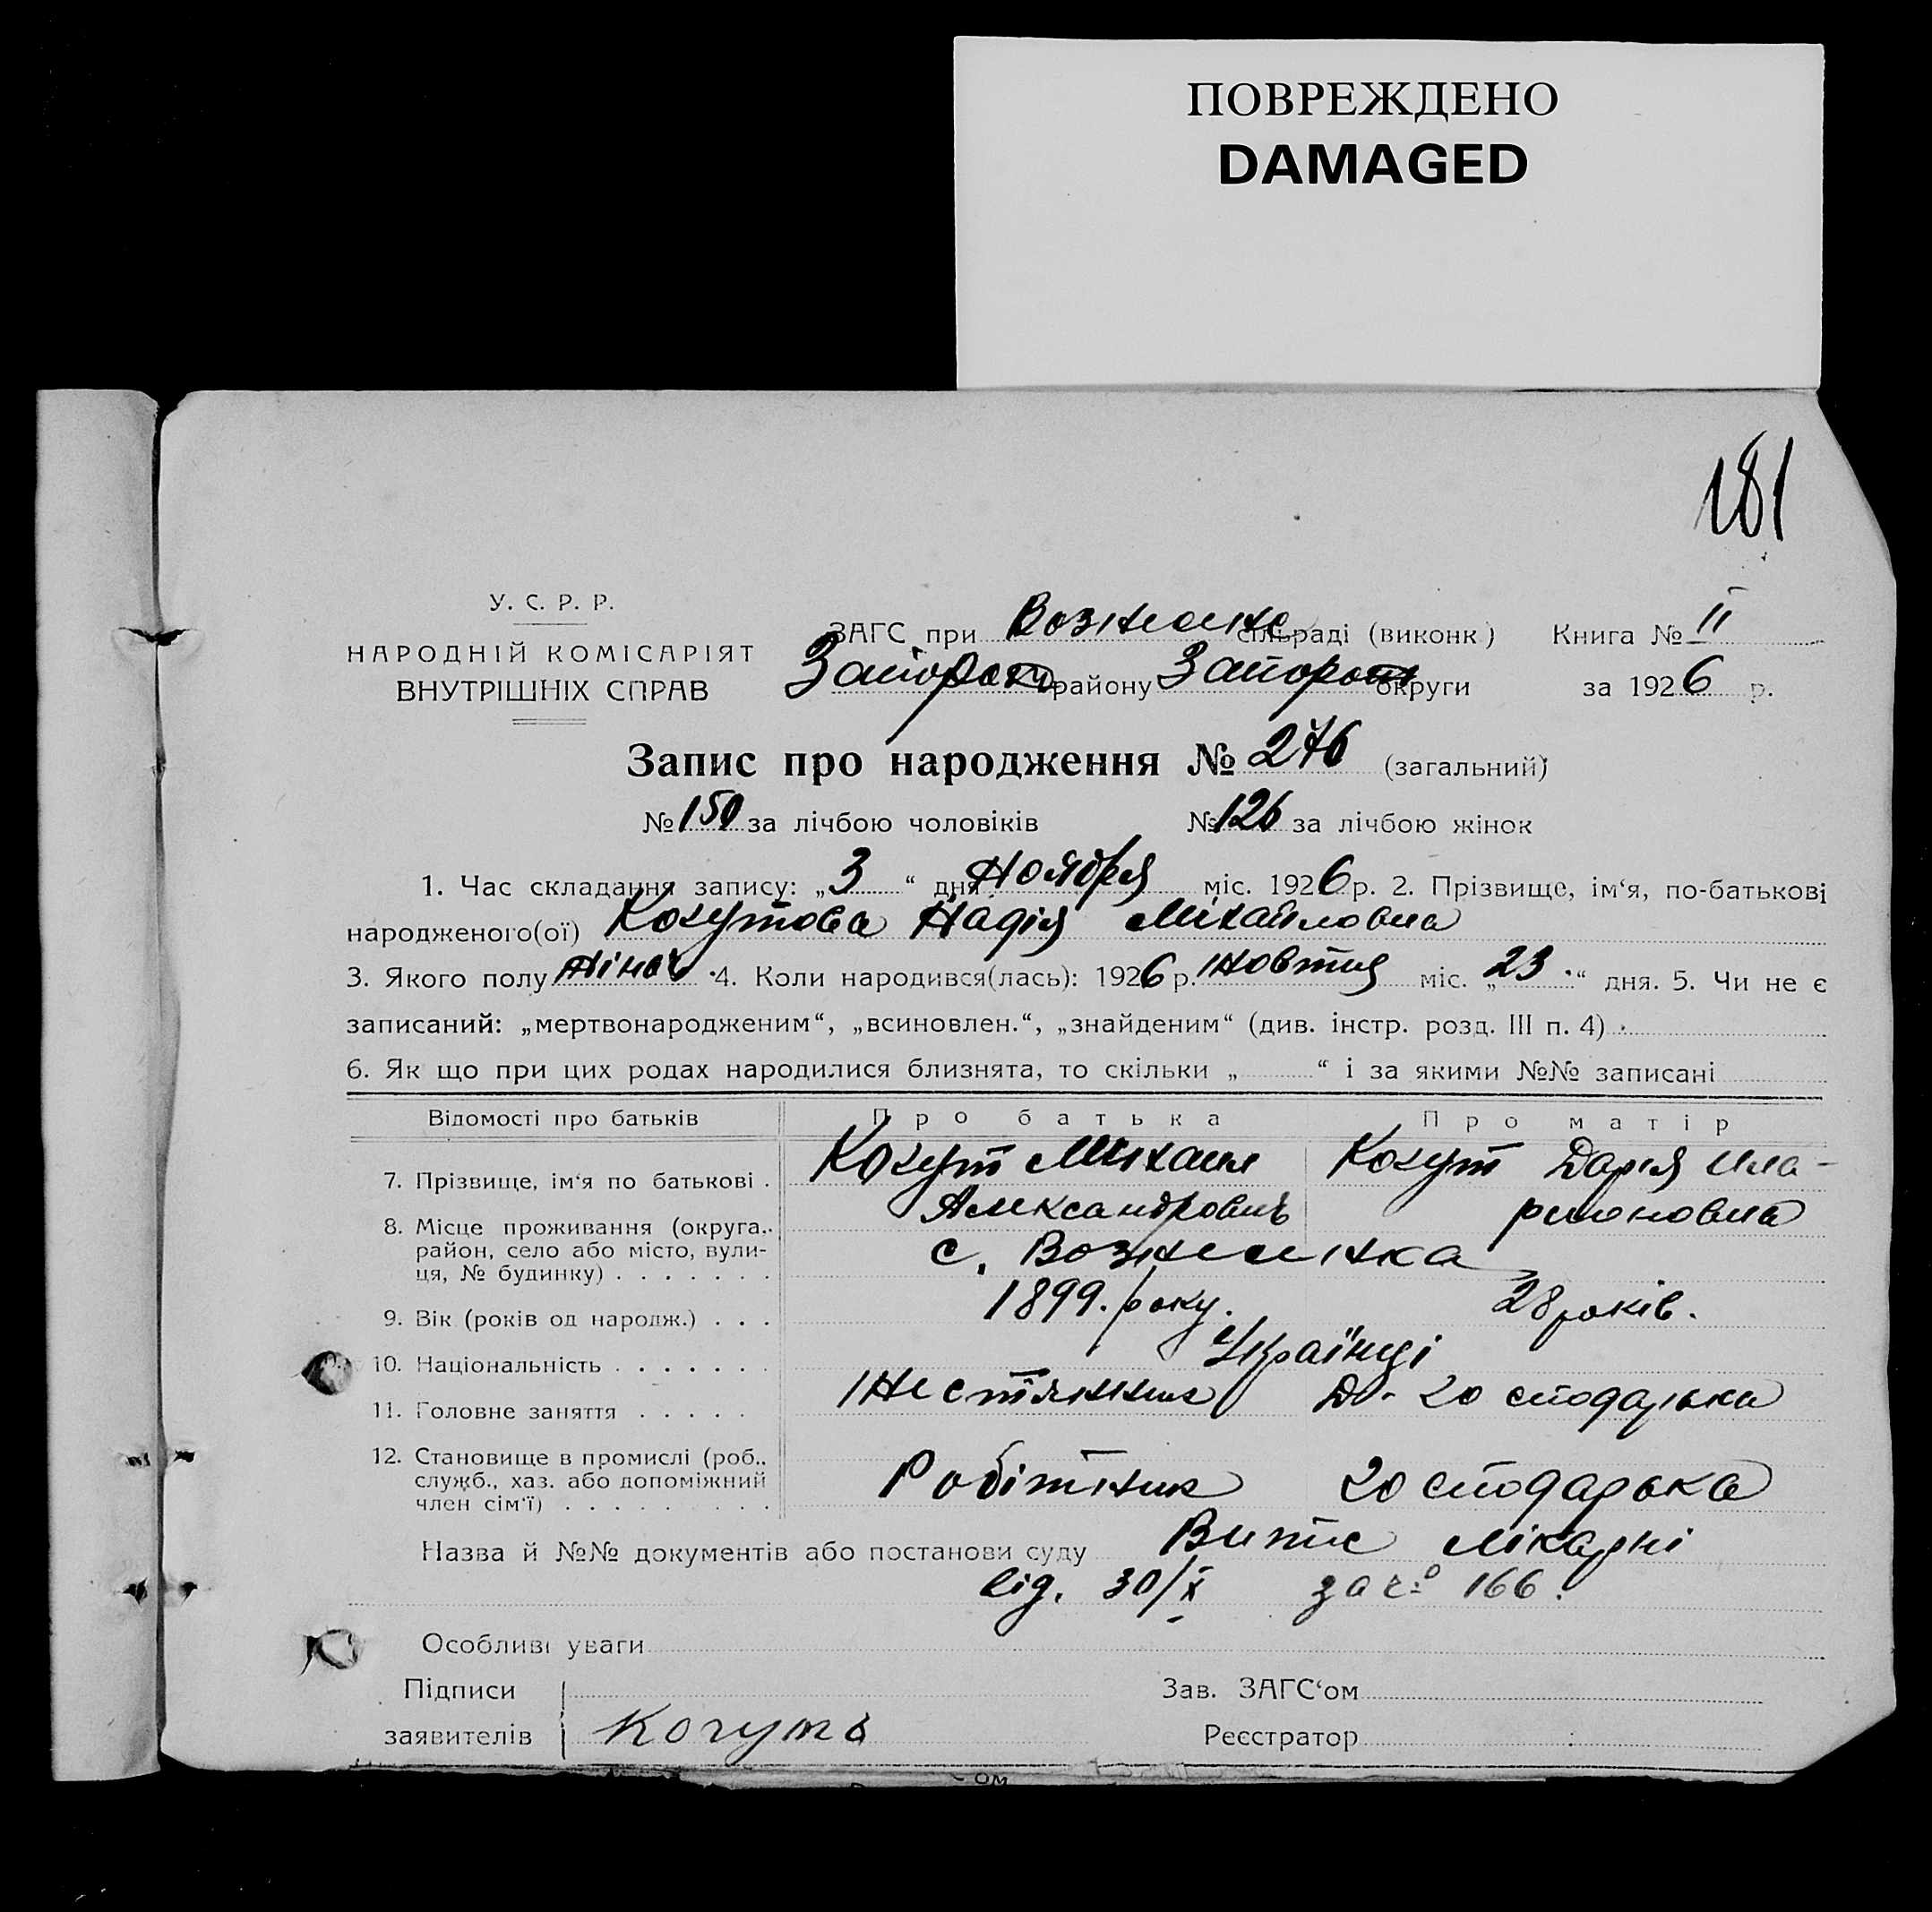 ПОВРЕЖДЕНО
DAMAGED
181
У. С. Р. Р.
НАРОДНІЙ КОМІСАРІЯТ
ВНУТРІШНІХ СПРАВ
ЗАГС при Вознесенс сільраді (виконк) Книга № II
Запорож району Запорож округи за 1926 р.
Запис про народження № 276 (загальний)
№ 150 за лічбою чоловіків № 126 за лічбою жінок
1. Час складання запису: „3“ дня Ноября міс. 1926 р. 2. Прізвище, ім‘я, по-батькові
народженого(ої) Когутова Надія Михайловна
3. Якого полу жіноч. 4. Коли народився(лась): 1926 р. Жовтня міс. „23“ дня. 5. Чи не є
записаний: „мертвонародженим“, „всиновлен.“, „знайденим“ (див. інстр. розд. III п. 4)
6. Як що при цих родах народилися близнята, то скільки „ “ і за якими №№ записані
Відомості про батьків Про батька Про матір
7. Прізвище, ім‘я по батькові . Когут Михаил Александровичъ Когут Дарія Ила-
рионовна
8. Місце проживання (округа,
район, село або місто, вули-
ця, № будинку) . . . . . . . с. Вознесенка
9. Вік (років од народж.) . . . 1899. року. 28 років.
10. Національність . . . . . . . Українці
11. Головне заняття . . . . . Жестяник До-господарька
12. Становище в промислі (роб.,
служб., хаз. або допоміжний
член сім‘ї) . . . . . . . . . Робітник господарька
Назва й №№ документів або постанови суду Витяг лікарні
від. 30/X за № 166.
Особливі уваги
Підписи Зав. ЗАГС‘ом
заявителів Когутъ Реєстратор
ом